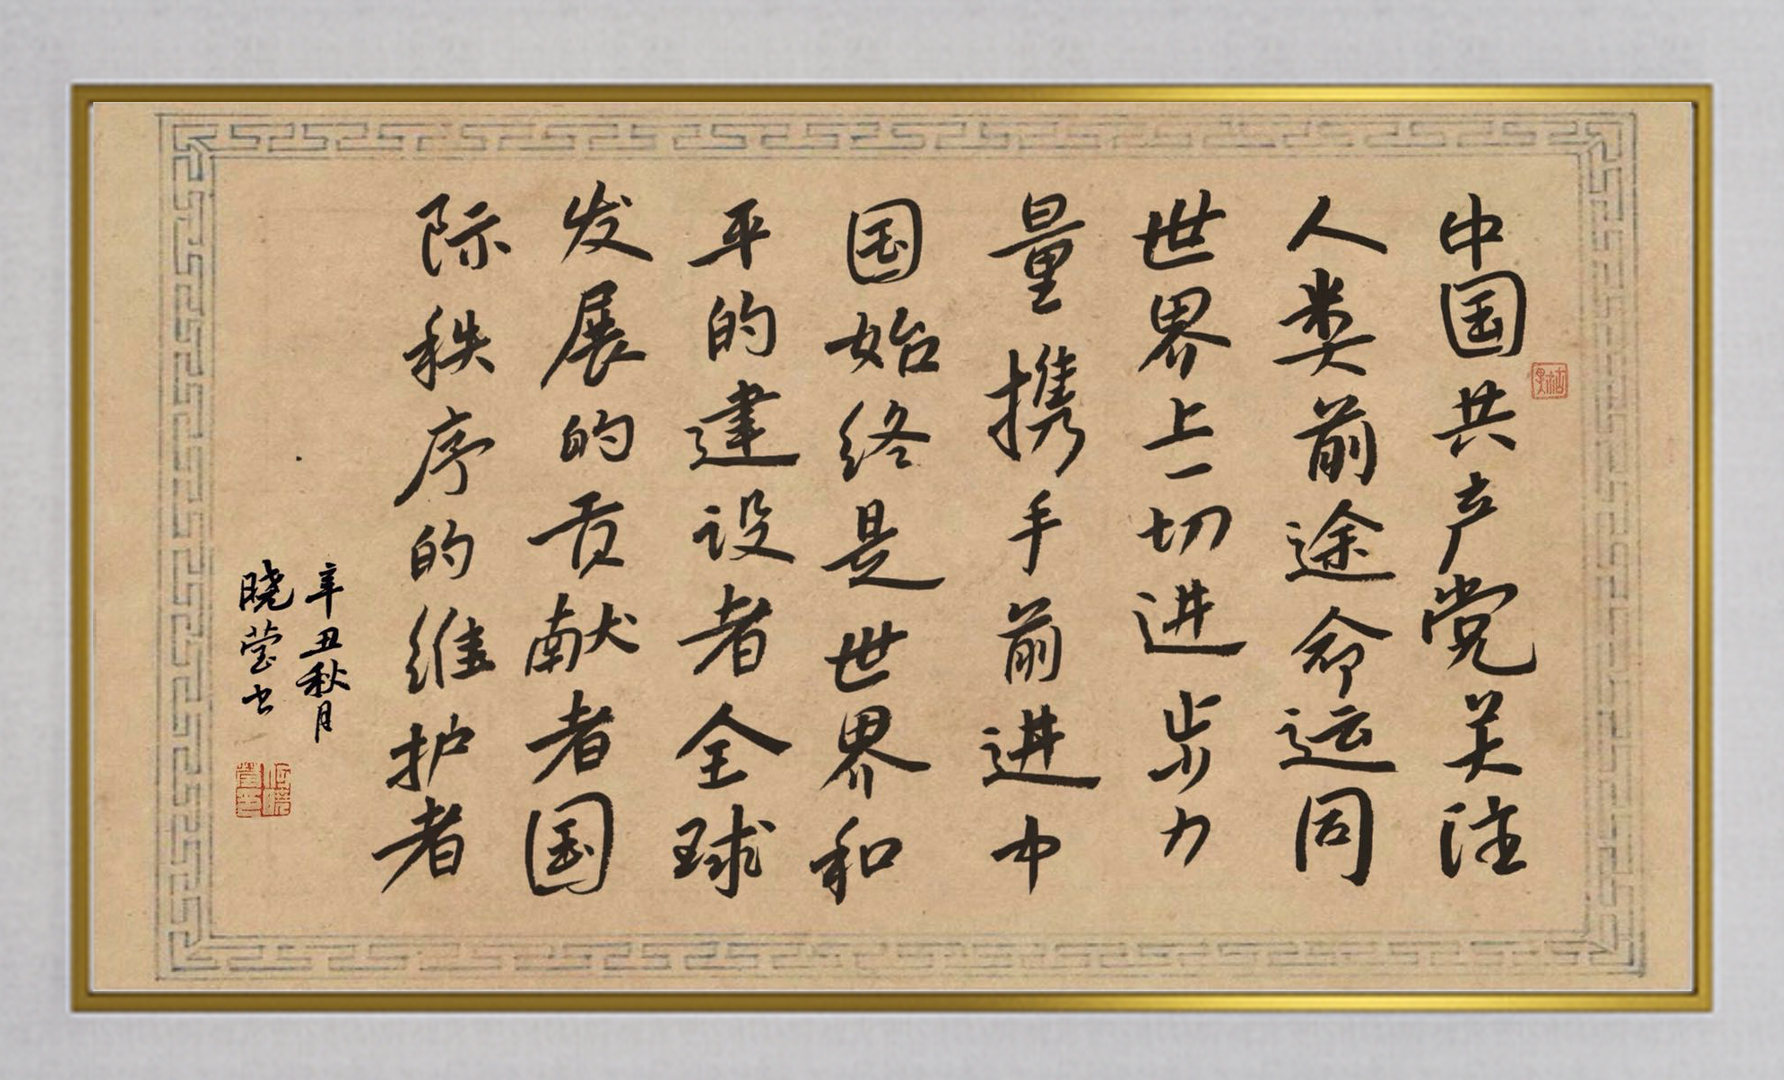 中国共产党关注
人类前途命运同
世界上一切进步力
量携手前进中
国始终是世界和
平的建设者全球
发展的贡献者国
际秩序的维护者
辛丑秋月
晓莹书